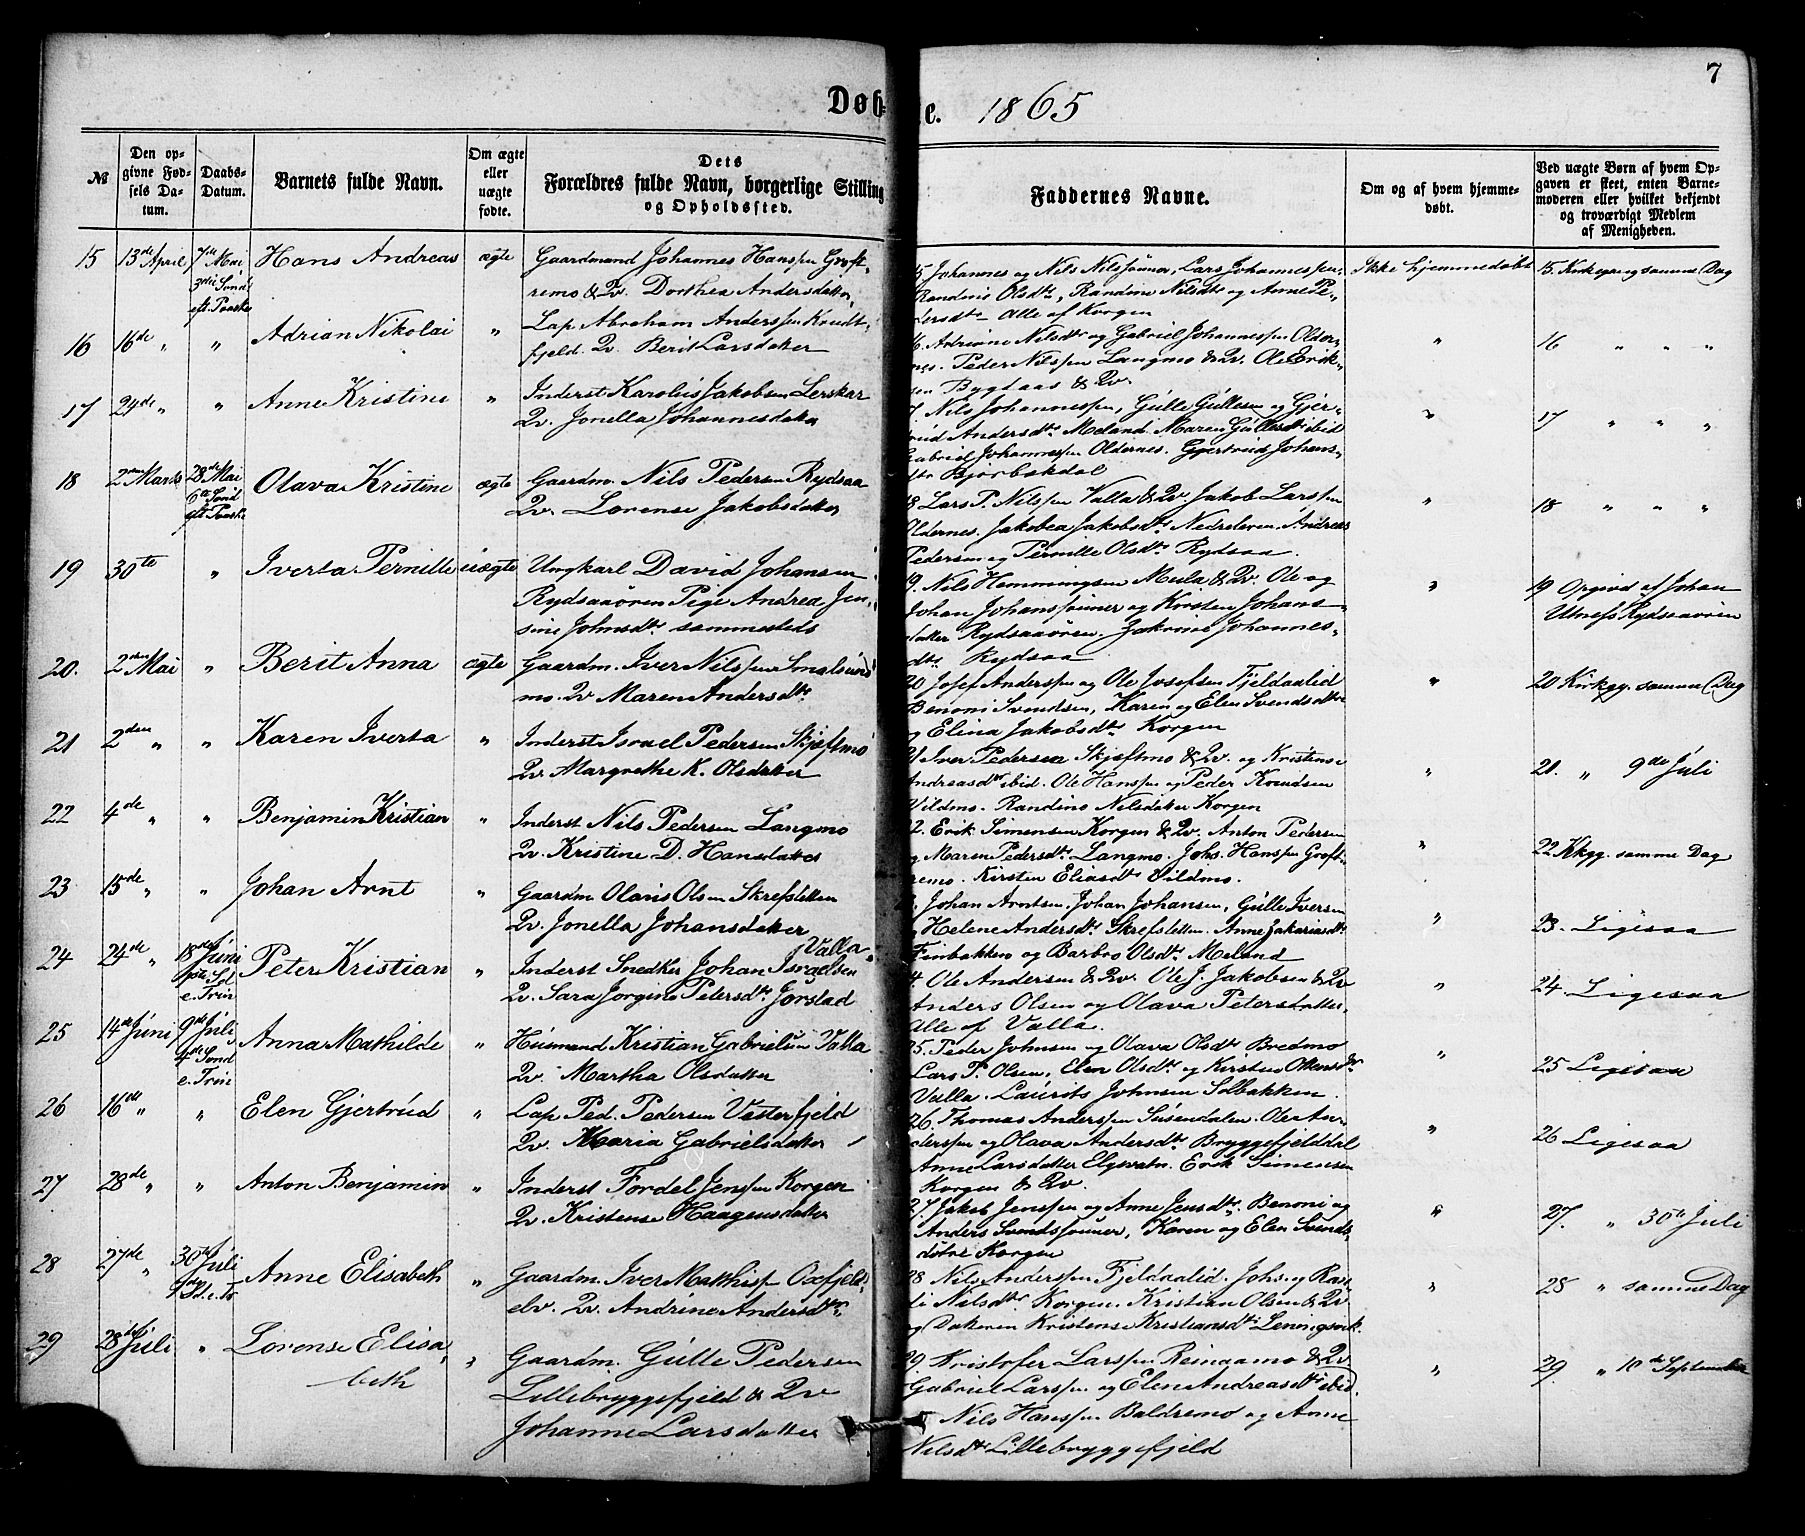 7
Døbte. 1865
№
Den opgivne Fødsels Datum.
Daabs-Datum.
Barnets fulde Navn.
Om ægte eller uægte fødte.
Dets Forældres fulde Navn, borgerlige Stilling og Opholdssted.
Faddernes Navne.
Om og af hvem hjemmedøbt.
Ved uægte Børn af hvem Opgaven er skeet, enten Barnemoderen eller hvilket bekjendt og troværdigt Medlem af Menigheden.
15 13de April 7de Mai 3die Sønd. eft. Paaske Hans Andreas ægte Gaardmand Johannes Hanssen Groft-
remo & Qv. Dorthea Andersdatter
15 Johannes og Nils Nilssønner, Lars Johannessen
Randine Olsdtr, Randine Nilsdtr og Anne Pe-
dersdtr Alle af Korgen
Ikke hjemmedøbt 15. Kirkegang samme Dag
16 16de " " Adrian Nikolai " Lap Abraham Anderssen Krudt-
fjeld. Qv. Berit Larsdatter
16. Adriane Nilsdtr og Gabriel Johannessen Older-
nes. Peder Nilssen Langmo & Qv. Ole Erik-
sen Bygtaas & Qv.
" 16 " " "
17 24de " " Anne Kristine " Inderst Karolius Jakobsen Lerskar
Qv. Jonella Johannesdatter
17 Nils Johannessen, Gulle Gullesen og Gjer-
trud Andersdtr Meland. Maren Gullesdtr ibid
Gabriel Johannessen Oldernes. Gjertrud Johans-
dtr Bjørbækdal
" 17 " " "
18 2den Marts 28de Mai 6te Sønd. eft. Paaske Olava Kristine ægte Gaardm. Nils Pedersen Rydsaa
Qv. Lorense Jakobsdatter
18 Lars P. Nilssen Valla & Qv. Jakob Larssen
Oldernes. Jakobea Jakobsdtr Nedreleren. Andreas
Pedersen og Pernille Olsdtr Rydsaa.
" 18 " " "
19 30te " Iverta Pernille uægte Ungkarl David Johansen
Rydsaaøren Pige Andrea Jen-
sine Johnsdtr sammesteds
19. Nils Hemmingsen Mula & Qv. Ole og
Johan Johanssønner og Kirsten Johans
datter Rydsaaøren. Jakrine Johannes-
dtr Rydsaa
" 19 Opgivd af Johan
Utnefs Rydsaaøren
20. 2den Mai " Berit Anna ægte Gaardm. Iver Nilssen Smalsund-
mo. Qv Maren Andersdtr
20 Josef Anderssen og Ole Josefsen Fjeldaalid
Benoni Svendsen, Karen og Elen Svendsdtre
og Elina Jakobsdtr Korgen
" 20 Kirkeg. samme Dag
21 2den " " Karen Iverta " Inderst Israel Pedersen Skjæftmo
Qv. Margrethe K. Olsdatter
21 Iver Pedersen Skjæftmo & Qv. og Kristine
Andreasdtr ibid. Ole Hanssen og Peder Knudsen
Vildmo. Randine Nilsdatter Korgen
" 21. " 9de Juli
22 4de " " Benjamin Kristian " Inderst Nils Pedersen Langmo
Qv. Kristine D. Hansdatter
22. Erik Simonsen Korgen & Qv. Anton Pedersen
og Maren Pedersdtr Langmo. Johs. Hanssen Groft-
remo. Kirsten Eliasdtr Vildmo.
" 22 Kkgg. samme Dag
23 15de " " Johan Arnt " Gaardm Olaus Olsen Skrefsletten
Qv. Jonella Johansdatter
Johan Arntsen, Johan Johansen, Gulle Iversen
og Helene Andersdtr Skrefsletten. Anne Zakariasdtr
Finbakken og Barbro Olsdtr Meland
" 23. Ligesaa
24 24de " 18de Juni 1ste Sd. e. Trin Peter Kristian " Inderst Snedker Johan Israelsen Valla
Qv. Sara Jorgine Petersdtr Jørstad
24 Ole Andersen & Qv. Ole J. Jakobsen & Qv
Anders Olsen og Olava Petersdatter,
Alle af Valla.
" 24. Ligesaa
25 14de Juni 9de Juli 4de Sønd e. Trin Anna Mathilde " Husmand Kristian Gabrielsen Valla
Qv. Martha Olsdatter
25. Peder Johnsen og Olava Olsdtr Bredmo
Lars P. Olsen, Elen Olsdtr og Kirsten Ottensdtr
Valla. Laurits Johnsen Solbakken
" 25 Ligesaa
26 16de " " Elen Gjertrud " Lap Ped. Pedersen Vesterfjeld
Qv. Maria Gabrielsdatter
26. Thomas Anderssen Susendalen. Ole An-
derssen og Olava Andersdtr Bryggefjelddal
Anne Larsdatter Elgsvatn. Erik Simensen
Korgen & Qv.
" 26 Ligesaa
27 28de " " Anton Benjamin " Inderst Fordel Jenssen Korgen
Qv. Kristense Haagensdatter
27 Jakob Jenssen og Anne Jensdtr. Benoni og
Anders Svendssønner, Karen og Elen Svends-
døtre Korgen
" 27. " 30te Juli
28 27de " 30te Juli 7de Sd. e. Tr Anne Elisabeth " Gaardm. Iver Matthiss. Oxfjeld-
elv. Qv. Andrine Andersdtr
28 Nils Anderssen Fjeldaalid. Johs. og Ras-
li Nilsdtr. Korgen. Kristian Olsen & Qv
og Datteren Kristense Kristiansdtr Leningsvik.
" 28 " samme Dag
29 28de Juli " Lorense Elisa-
beth
" Gaardm. Gulle Pedersen
Lillebryggefjeld & Qv
Johanne Larsdatter
29 Kristofer Larssen Reinaamo & Qv
Gabriel Larssen og Elen Andreasdtr ibid.
Nils Hanssen Baldremo og Anne
Nilsdtr Lillebryggefjeld
" 29 " 10de September